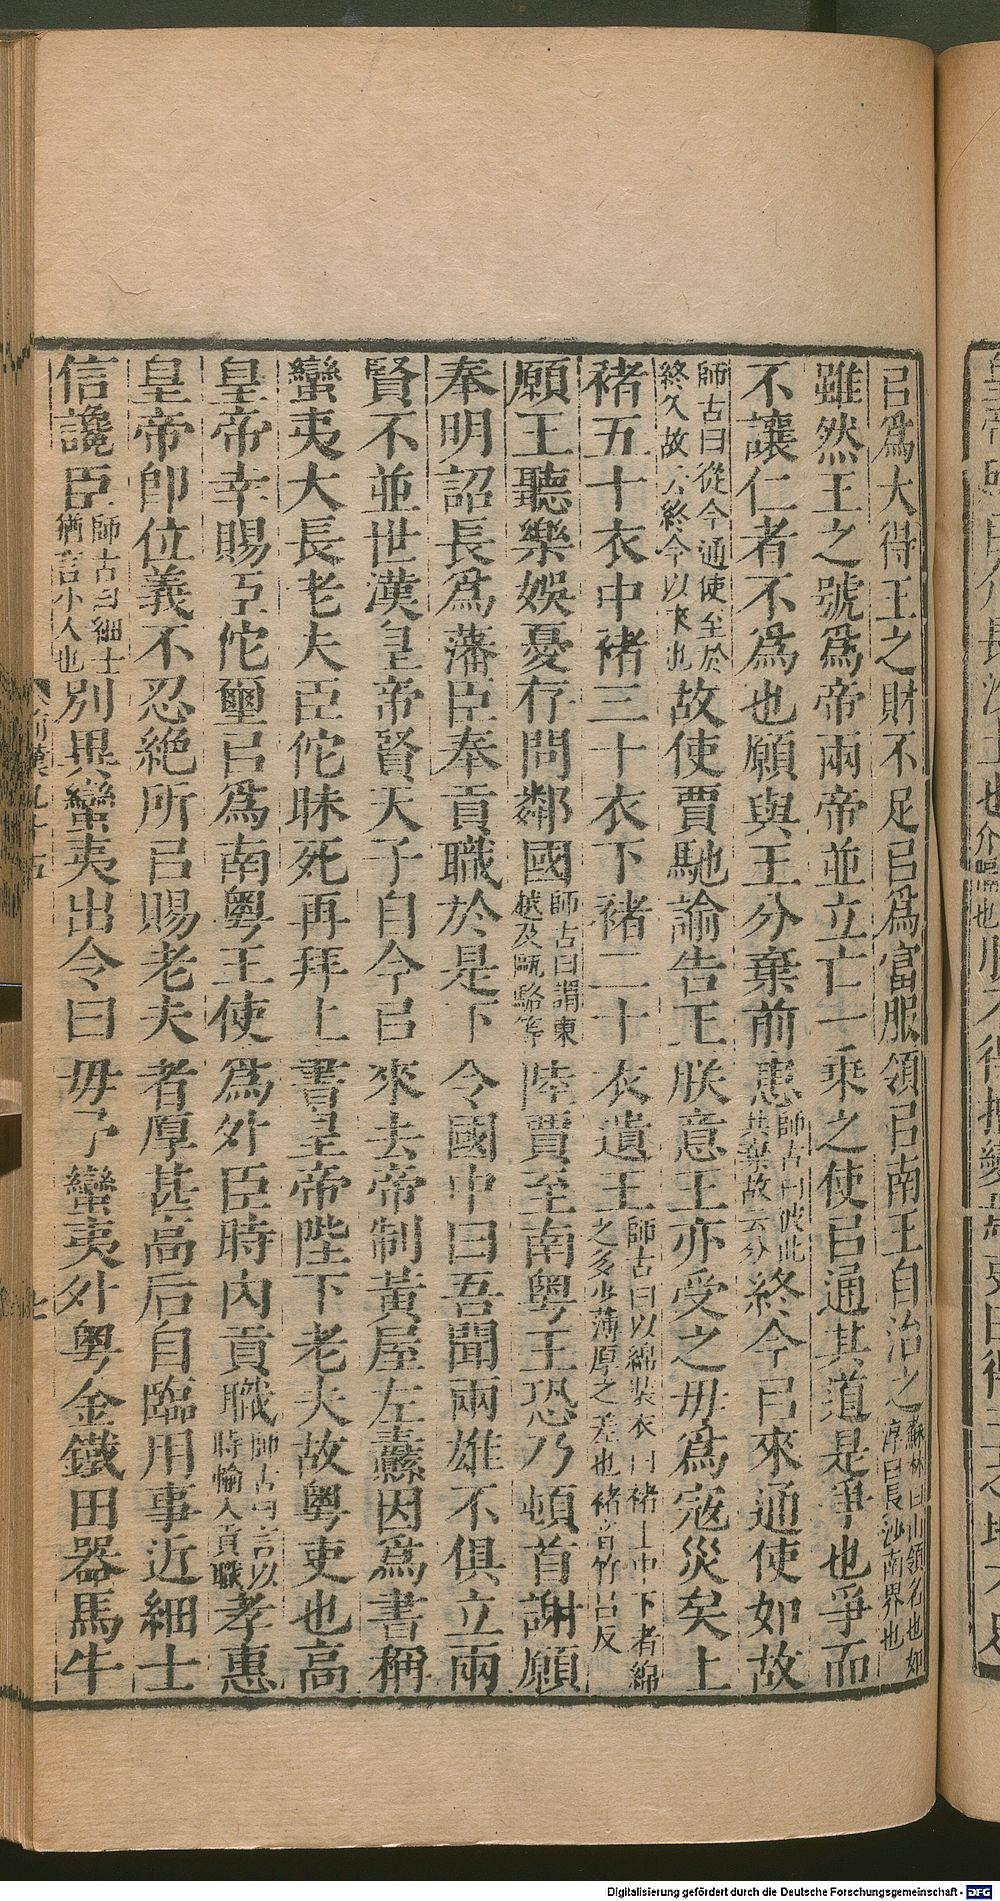 㠯爲大得王之財不足㠯爲富服領㠯南王自治之蘇林曰山領名也如淳曰長沙南界也
雖然王之號爲帝兩帝並立亡一乘之使㠯通其道是爭也爭而
不讓仁者不爲也願與王分棄前患師古曰彼此共棄故云分終今㠯來通使如故
師古曰從今通使至於終久故云終今以來也故使賈馳諭告王朕意王亦受之毋爲寇災矣上
褚五十衣中褚三十衣下褚二十衣遺王師古曰以綿裝衣曰褚上中下者綿之多少薄厚之差也褚音竹呂反
願王聽樂娛憂存問鄰國師古曰謂東越及甌駱等陸賈至南粵王恐乃頓首謝願
奉明詔長爲藩臣奉貢職於是下令國中曰吾聞兩雄不俱立兩
賢不並世漢皇帝賢天子自今㠯來去帝制黃屋左纛因爲書稱
蠻夷大長老夫臣佗昧死再拜上書皇帝陛下老夫故粵吏也高
皇帝幸賜臣佗璽㠯爲南粵王使爲外臣時內貢職師古曰言以時輸入貢職孝惠
皇帝卽位義不忍絕所㠯賜老夫者厚甚高后自臨用事近細士
信讒臣師古曰細士猶言小人也別異蠻夷出令曰毋予蠻夷外粵金鐵田器馬牛
七
Digitalisierung gefördert durch die Deutsche Forschungsgemeinschaft - DFG